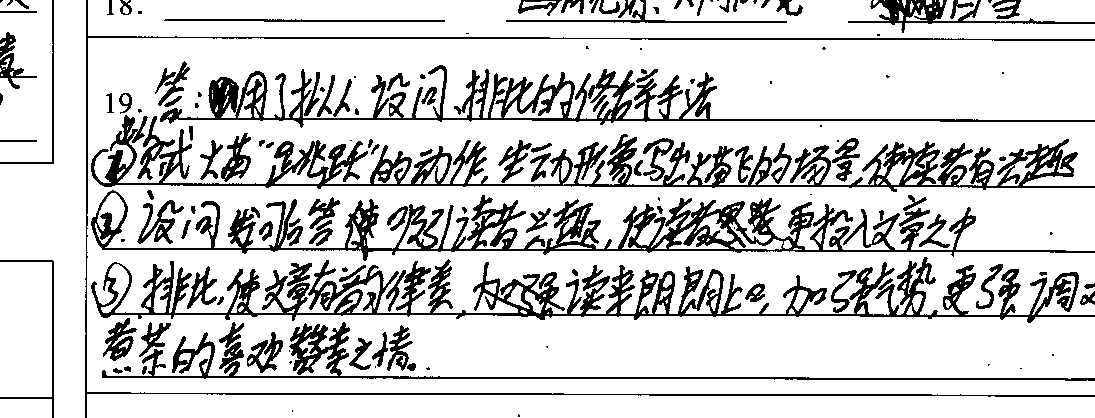 18.
19. 答:用了拟人、设问、排比的修辞手法
拟人
①赋予火苗"跳跃"的动作,生动形象写出火苗飞的场景,使读者有兴趣
②.设问先问后答使吸引读者兴趣,使读者思考更投入文章之中
③,排比,使文章有韵律奏,加强读来朗朗上口,加强气势,更强调
煮茶的喜欢赞美之情。